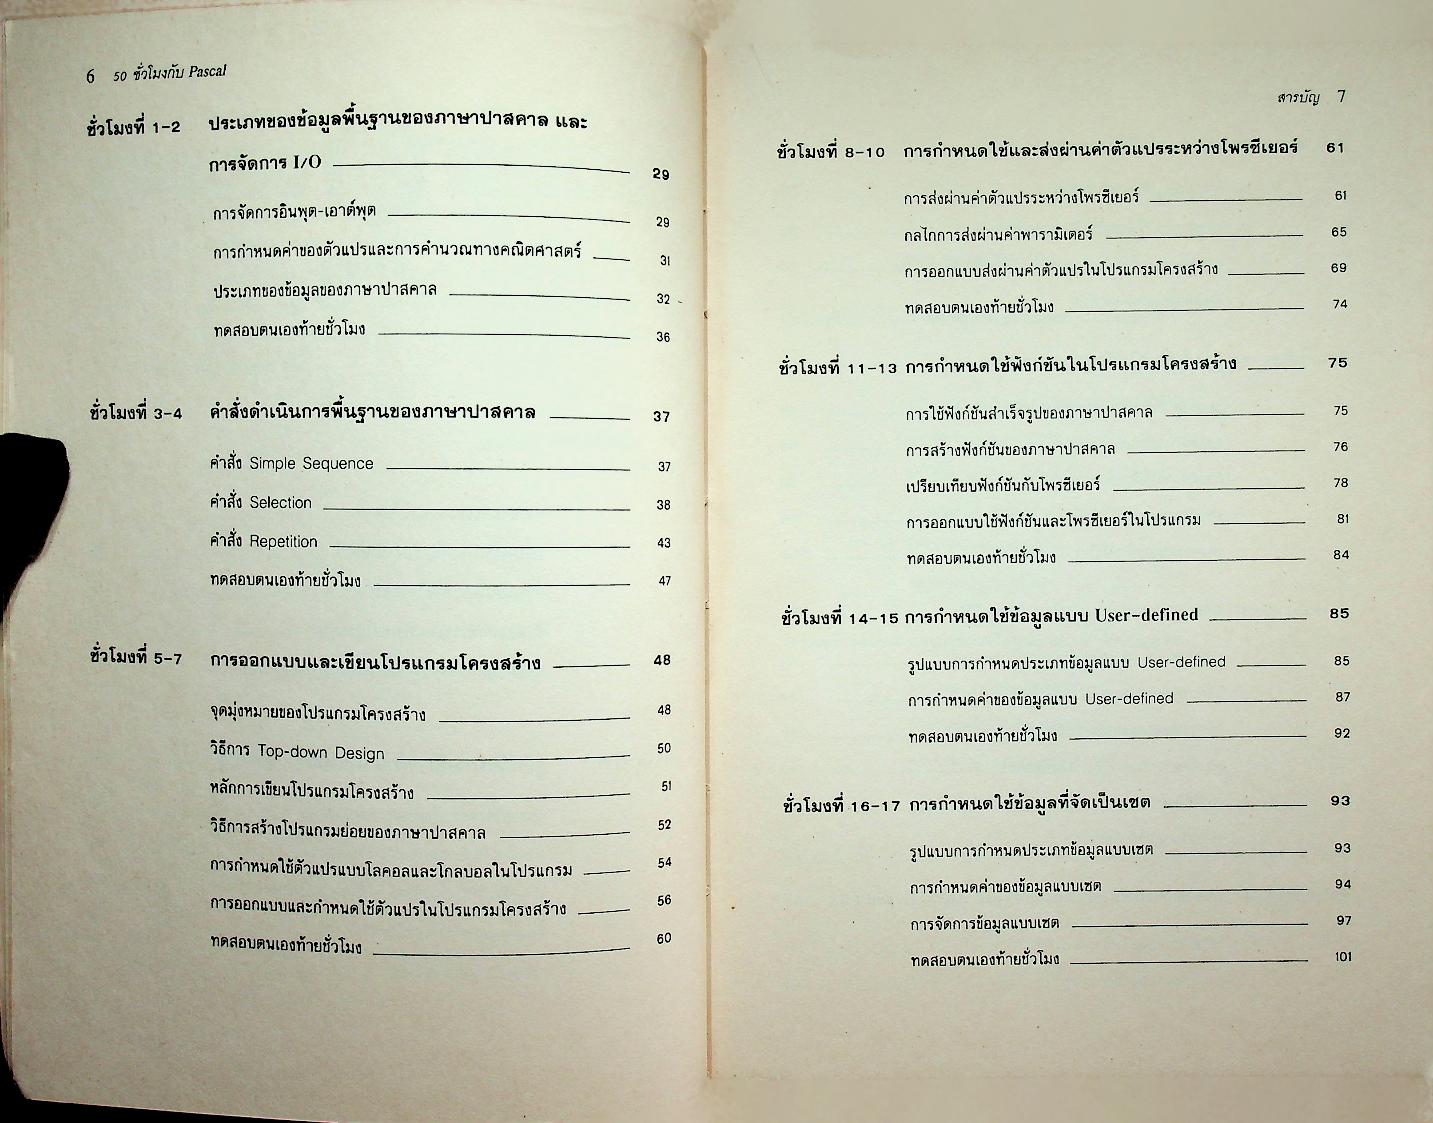 6 50 ชั่วโมงกับ Pascal
ชั่วโมงที่ 1-2 ประเภทของข้อมูลพื้นฐานของภาษาปาสคาล และ
การจัดการ I/O 29
การจัดการอินพุต-เอาต์พุต 29
การกำหนดค่าของตัวแปรและการคำนวณทางคณิตศาสตร์ 31
ประเภทของข้อมูลของภาษาปาสคาล 32
ทดสอบตนเองท้ายชั่วโมง 36
ชั่วโมงที่ 3-4 คำสั่งดำเนินการพื้นฐานของภาษาปาสคาล 37
คำสั่ง Simple Sequence 37
คำสั่ง Selection 38
คำสั่ง Repetition 43
ทดสอบตนเองท้ายชั่วโมง 47
ชั่วโมงที่ 5-7 การออกแบบและเขียนโปรแกรมโครงสร้าง 48
จุดมุ่งหมายของโปรแกรมโครงสร้าง 48
วิธีการ Top-down Design 50
หลักการเขียนโปรแกรมโครงสร้าง 51
วิธีการสร้างโปรแกรมย่อยของภาษาปาสคาล 52
การกำหนดใช้ตัวแปรแบบโลคอลและโกลบอลในโปรแกรม 54
การออกแบบและกำหนดใช้ตัวแปรในโปรแกรมโครงสร้าง 56
ทดสอบตนเองท้ายชั่วโมง 60
สารบัญ 7
ชั่วโมงที่ 8-10 การกำหนดใช้และส่งผ่านค่าตัวแปรระหว่างโพรซีเยอร์ 61
การส่งผ่านค่าตัวแปรระหว่างโพรซีเยอร์ 61
กลไกการส่งผ่านค่าพารามิเตอร์ 65
การออกแบบส่งผ่านค่าตัวแปรในโปรแกรมโครงสร้าง 69
ทดสอบตนเองท้ายชั่วโมง 74
ชั่วโมงที่ 11-13 การกำหนดใช้ฟังก์ชันในโปรแกรมโครงสร้าง 75
การใช้ฟังก์ชันสำเร็จรูปของภาษาปาสคาล 75
การสร้างฟังก์ชันของภาษาปาสคาล 76
เปรียบเทียบฟังก์ชันกับโพรซีเยอร์ 78
การออกแบบใช้ฟังก์ชันและโพรซีเยอร์ในโปรแกรม 81
ทดสอบตนเองท้ายชั่วโมง 84
ชั่วโมงที่ 14-15 การกำหนดใช้ข้อมูลแบบ User-defined 85
รูปแบบการกำหนดประเภทข้อมูลแบบ User-defined 85
การกำหนดค่าของข้อมูลแบบ User-defined 87
ทดสอบตนเองท้ายชั่วโมง 92
ชั่วโมงที่ 16-17 การกำหนดใช้ข้อมูลที่จัดเป็นเซต 93
รูปแบบการกำหนดประเภทข้อมูลแบบเซต 93
การกำหนดค่าของข้อมูลแบบเซต 94
การจัดการข้อมูลแบบเซต 97
ทดสอบตนเองท้ายชั่วโมง 101